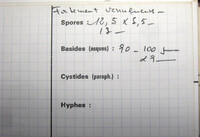 Fortement verruqueuses
Spores : 12,5 x 5,5 -
13 -
Basides (asques) : 90 - 100
Cystides (paraph.) :
Hyphes :